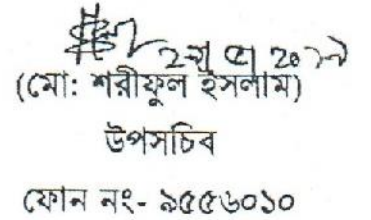 (মো: শরীফুল ইসলাম)
উপসচিব
ফোন নং- ৯৫৫৬০১০